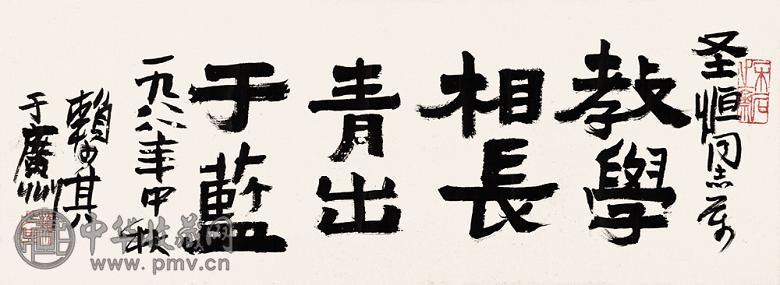 圣恒同志属
教學
相長
青出
于藍
一九八年中秋
賴少其
于廣州
中华收藏网
www.pmv.cn